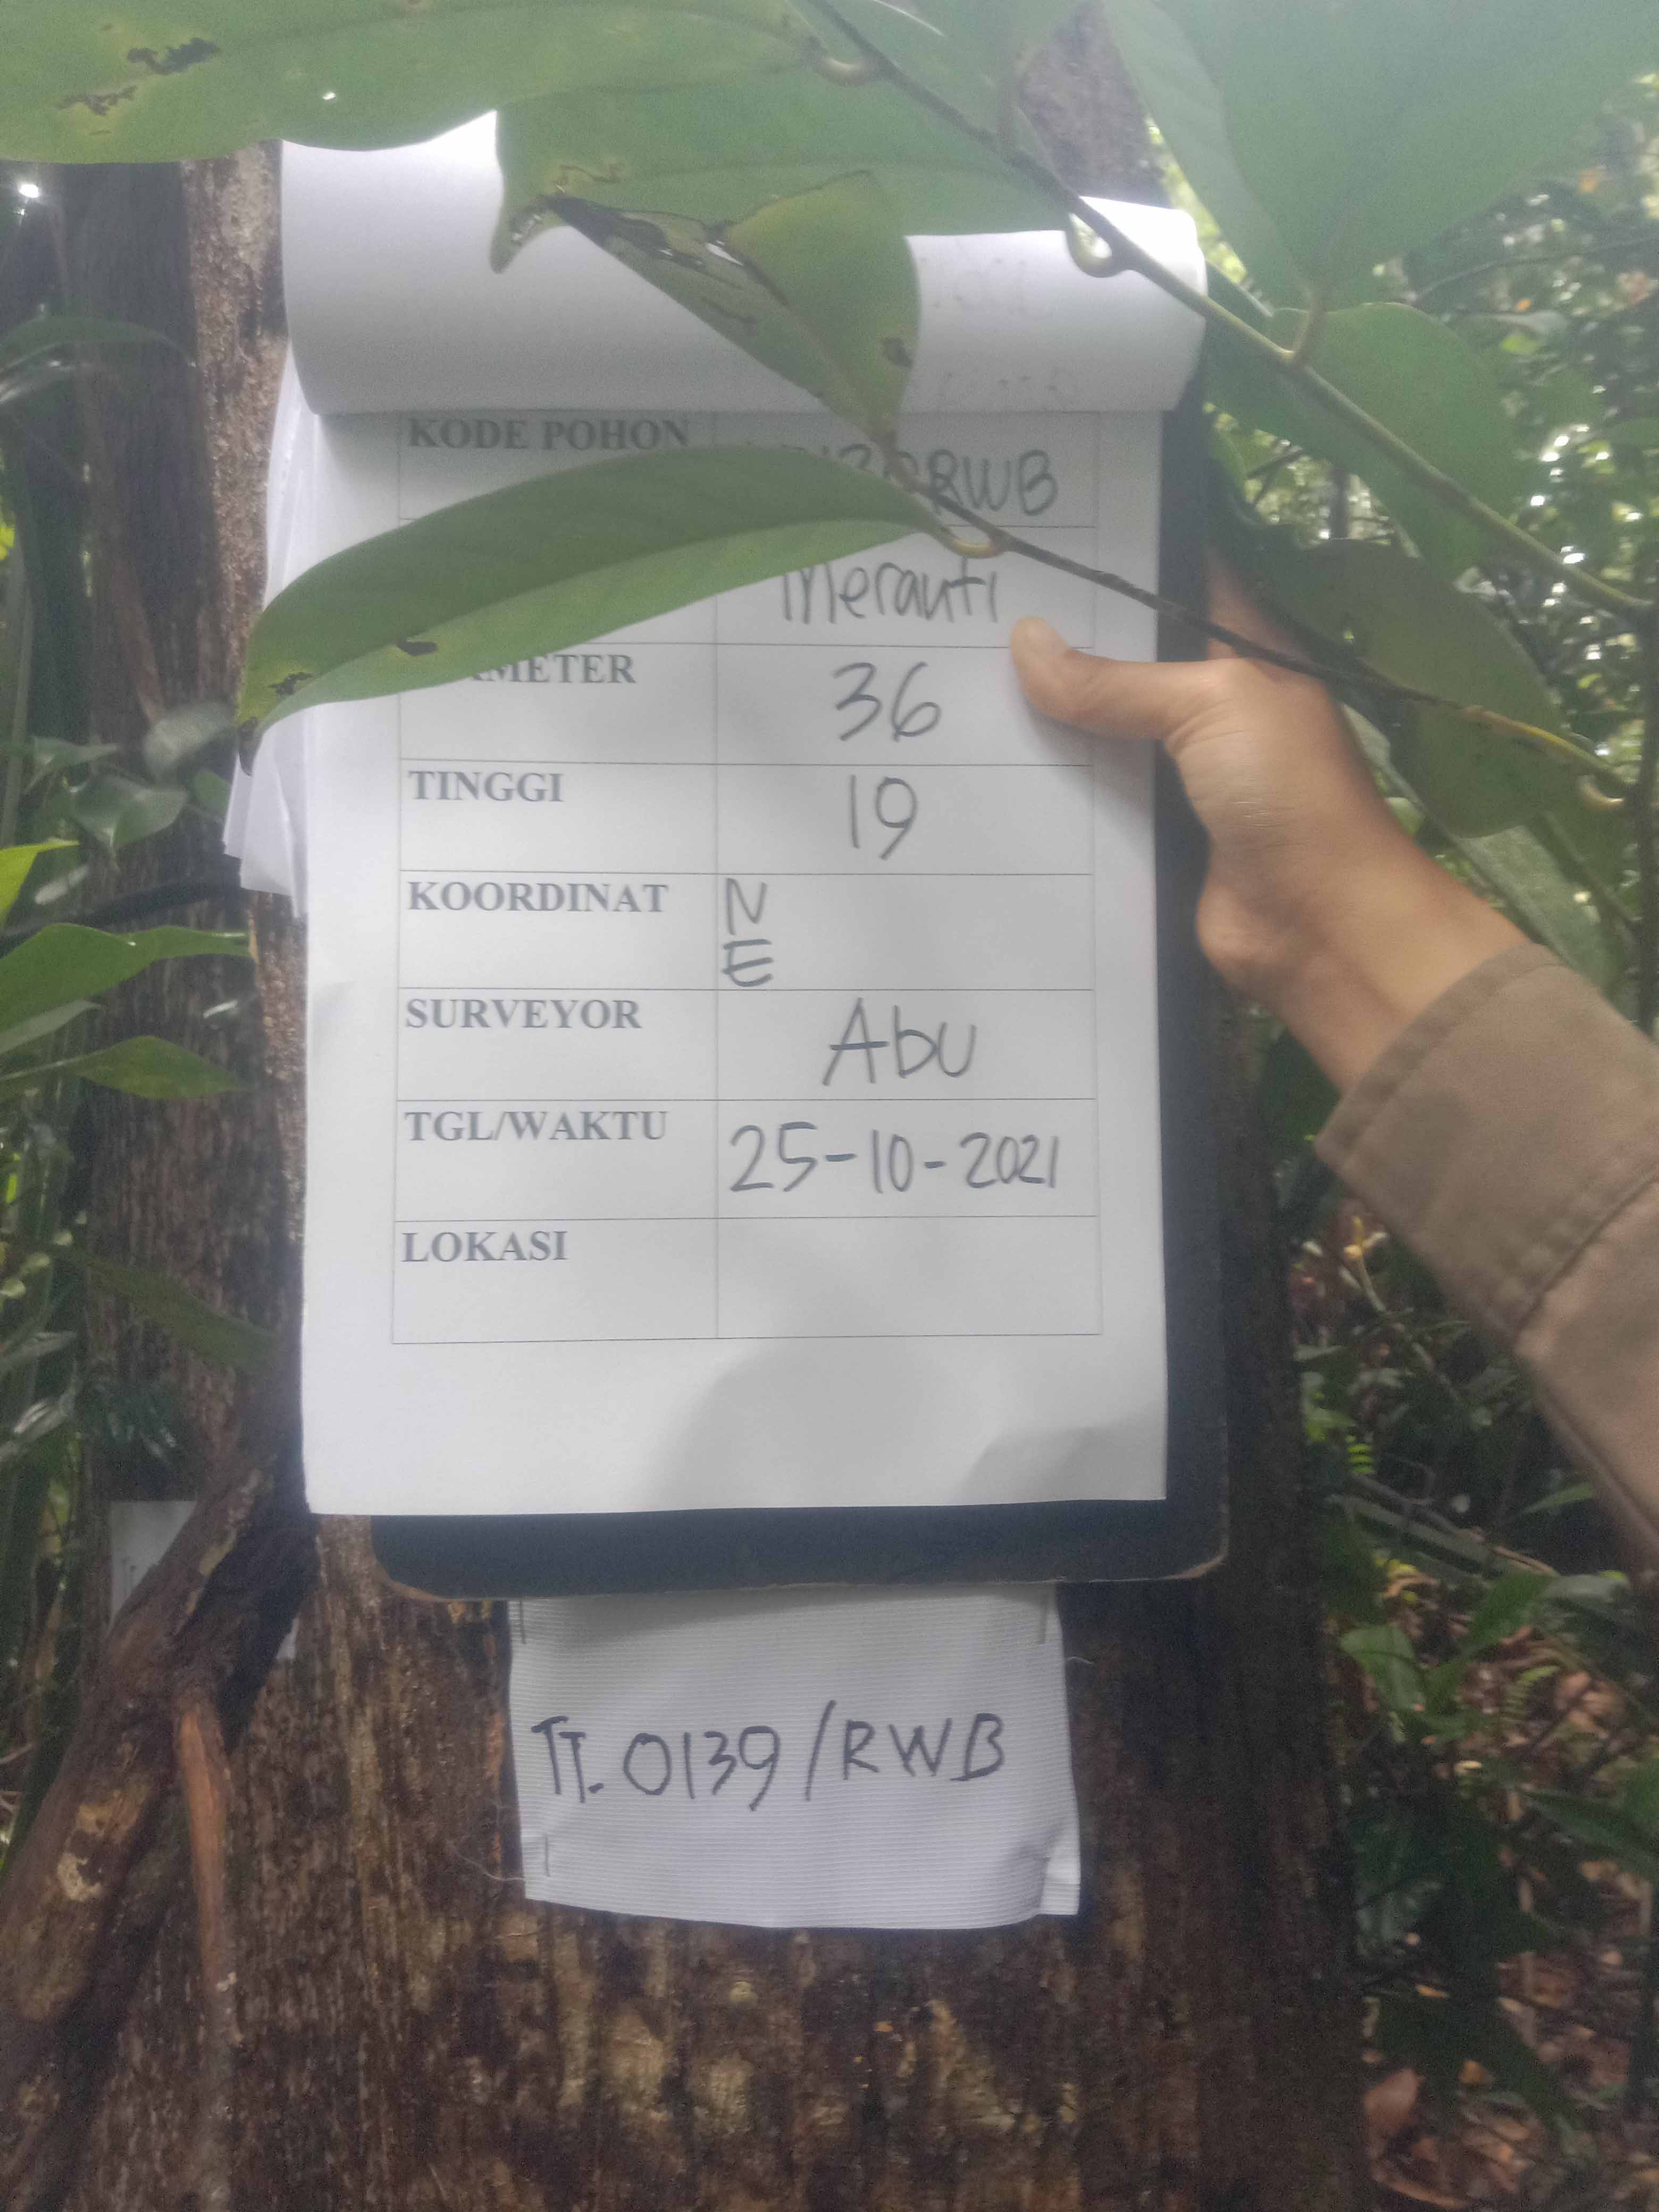 KODE POHON
RWB
Meranti
METER
36
TINGGI
19
KOORDINAT
N
E
SURVEYOR
Abu
TGL/WAKTU
25-10-2021
LOKASI
TT. 0139/RWB